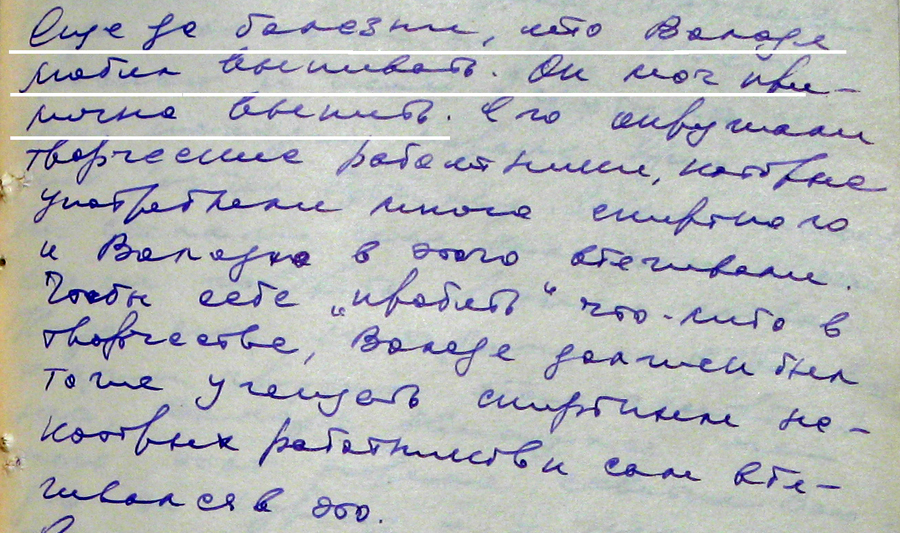 Еще до болезни, что Володя
любил выпивать. Он мог при-
лично выпить. Его окружали
творческие работники, которые
употребляли много спиртного
и Володю в этого втягивали.
Чтобы себе „пробить“ что-либо в
творчестве, Володя должен был
тоже угощать спиртным не-
которых работников и сам втя-
гивался в это.